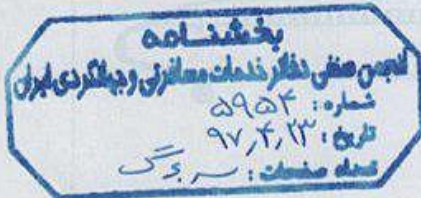 بخشنامه
انجمن صنفی دفاتر خدمات مسافرتی و جهانگردی ایران
شماره: ۵۹۵۴
تاریخ: ۹۷٫۴٫۲۳
تعداد صفحات: سه برگ